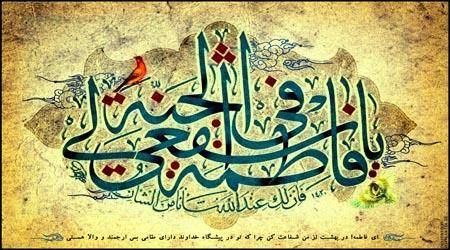 یا فاطمة اشفعی لی فی الجنة
فان لک عند الله شأنا من الشأن
ای فاطمه! در بهشت از من شفاعت کن چرا که تو در پیشگاه خداوند دارای مقامی بس ارجمند و والا هستی